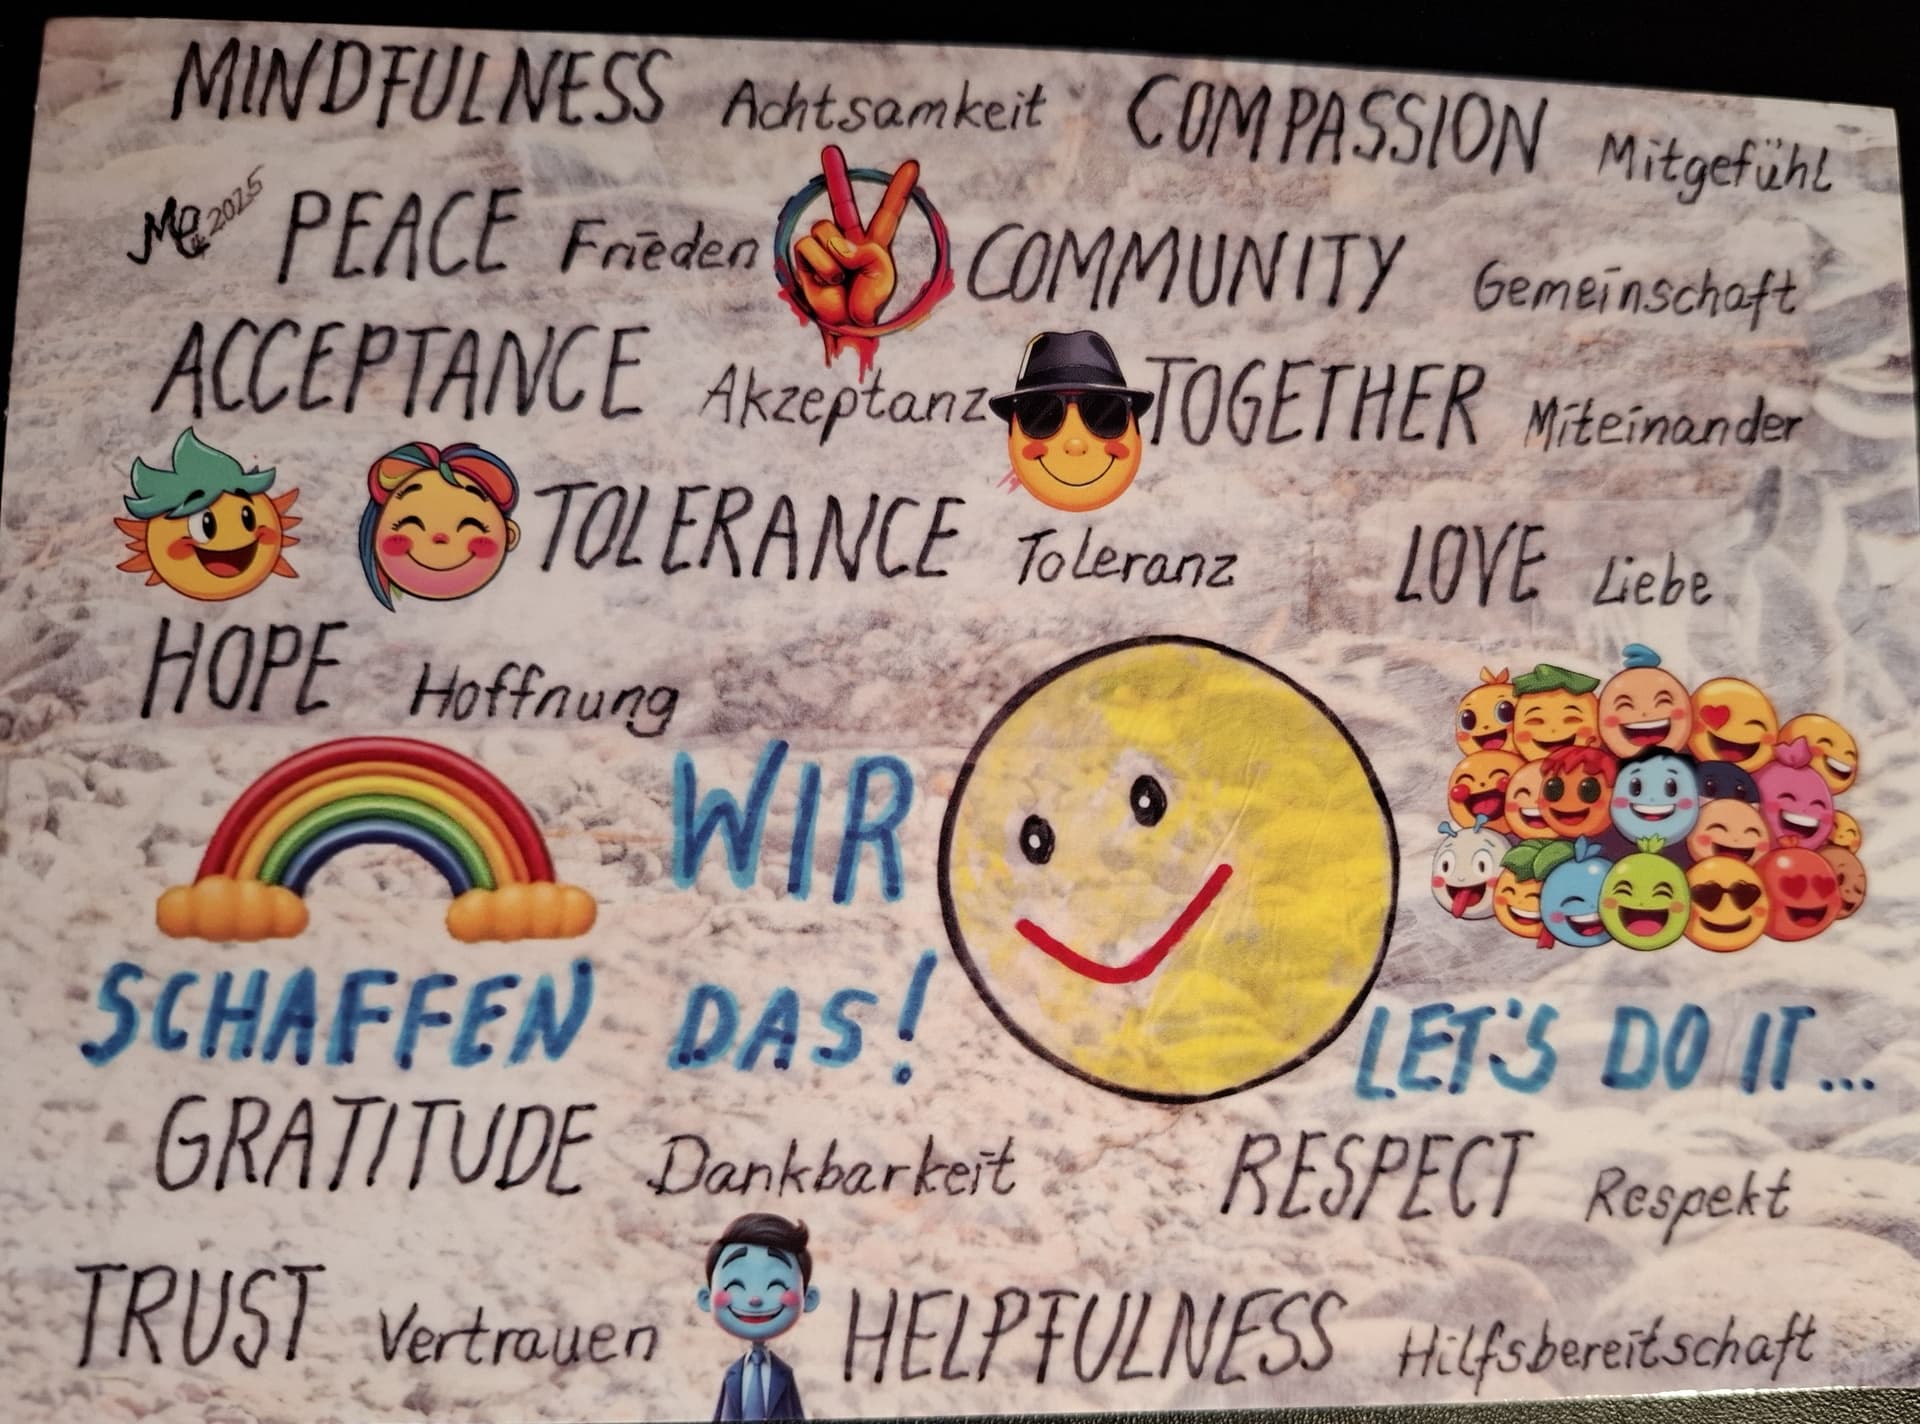 MINDFULNESS Achtsamkeit COMPASSION Mitgefühl
2025 PEACE Frieden COMMUNITY Gemeinschaft
ACCEPTANCE Akzeptanz TOGETHER Miteinander
TOLERANCE Toleranz LOVE Liebe
HOPE Hoffnung
WIR
SCHAFFEN DAS! LET'S DO IT...
GRATITUDE Dankbarkeit RESPECT Respekt
TRUST Vertrauen HELPFULNESS Hilfsbereitschaft